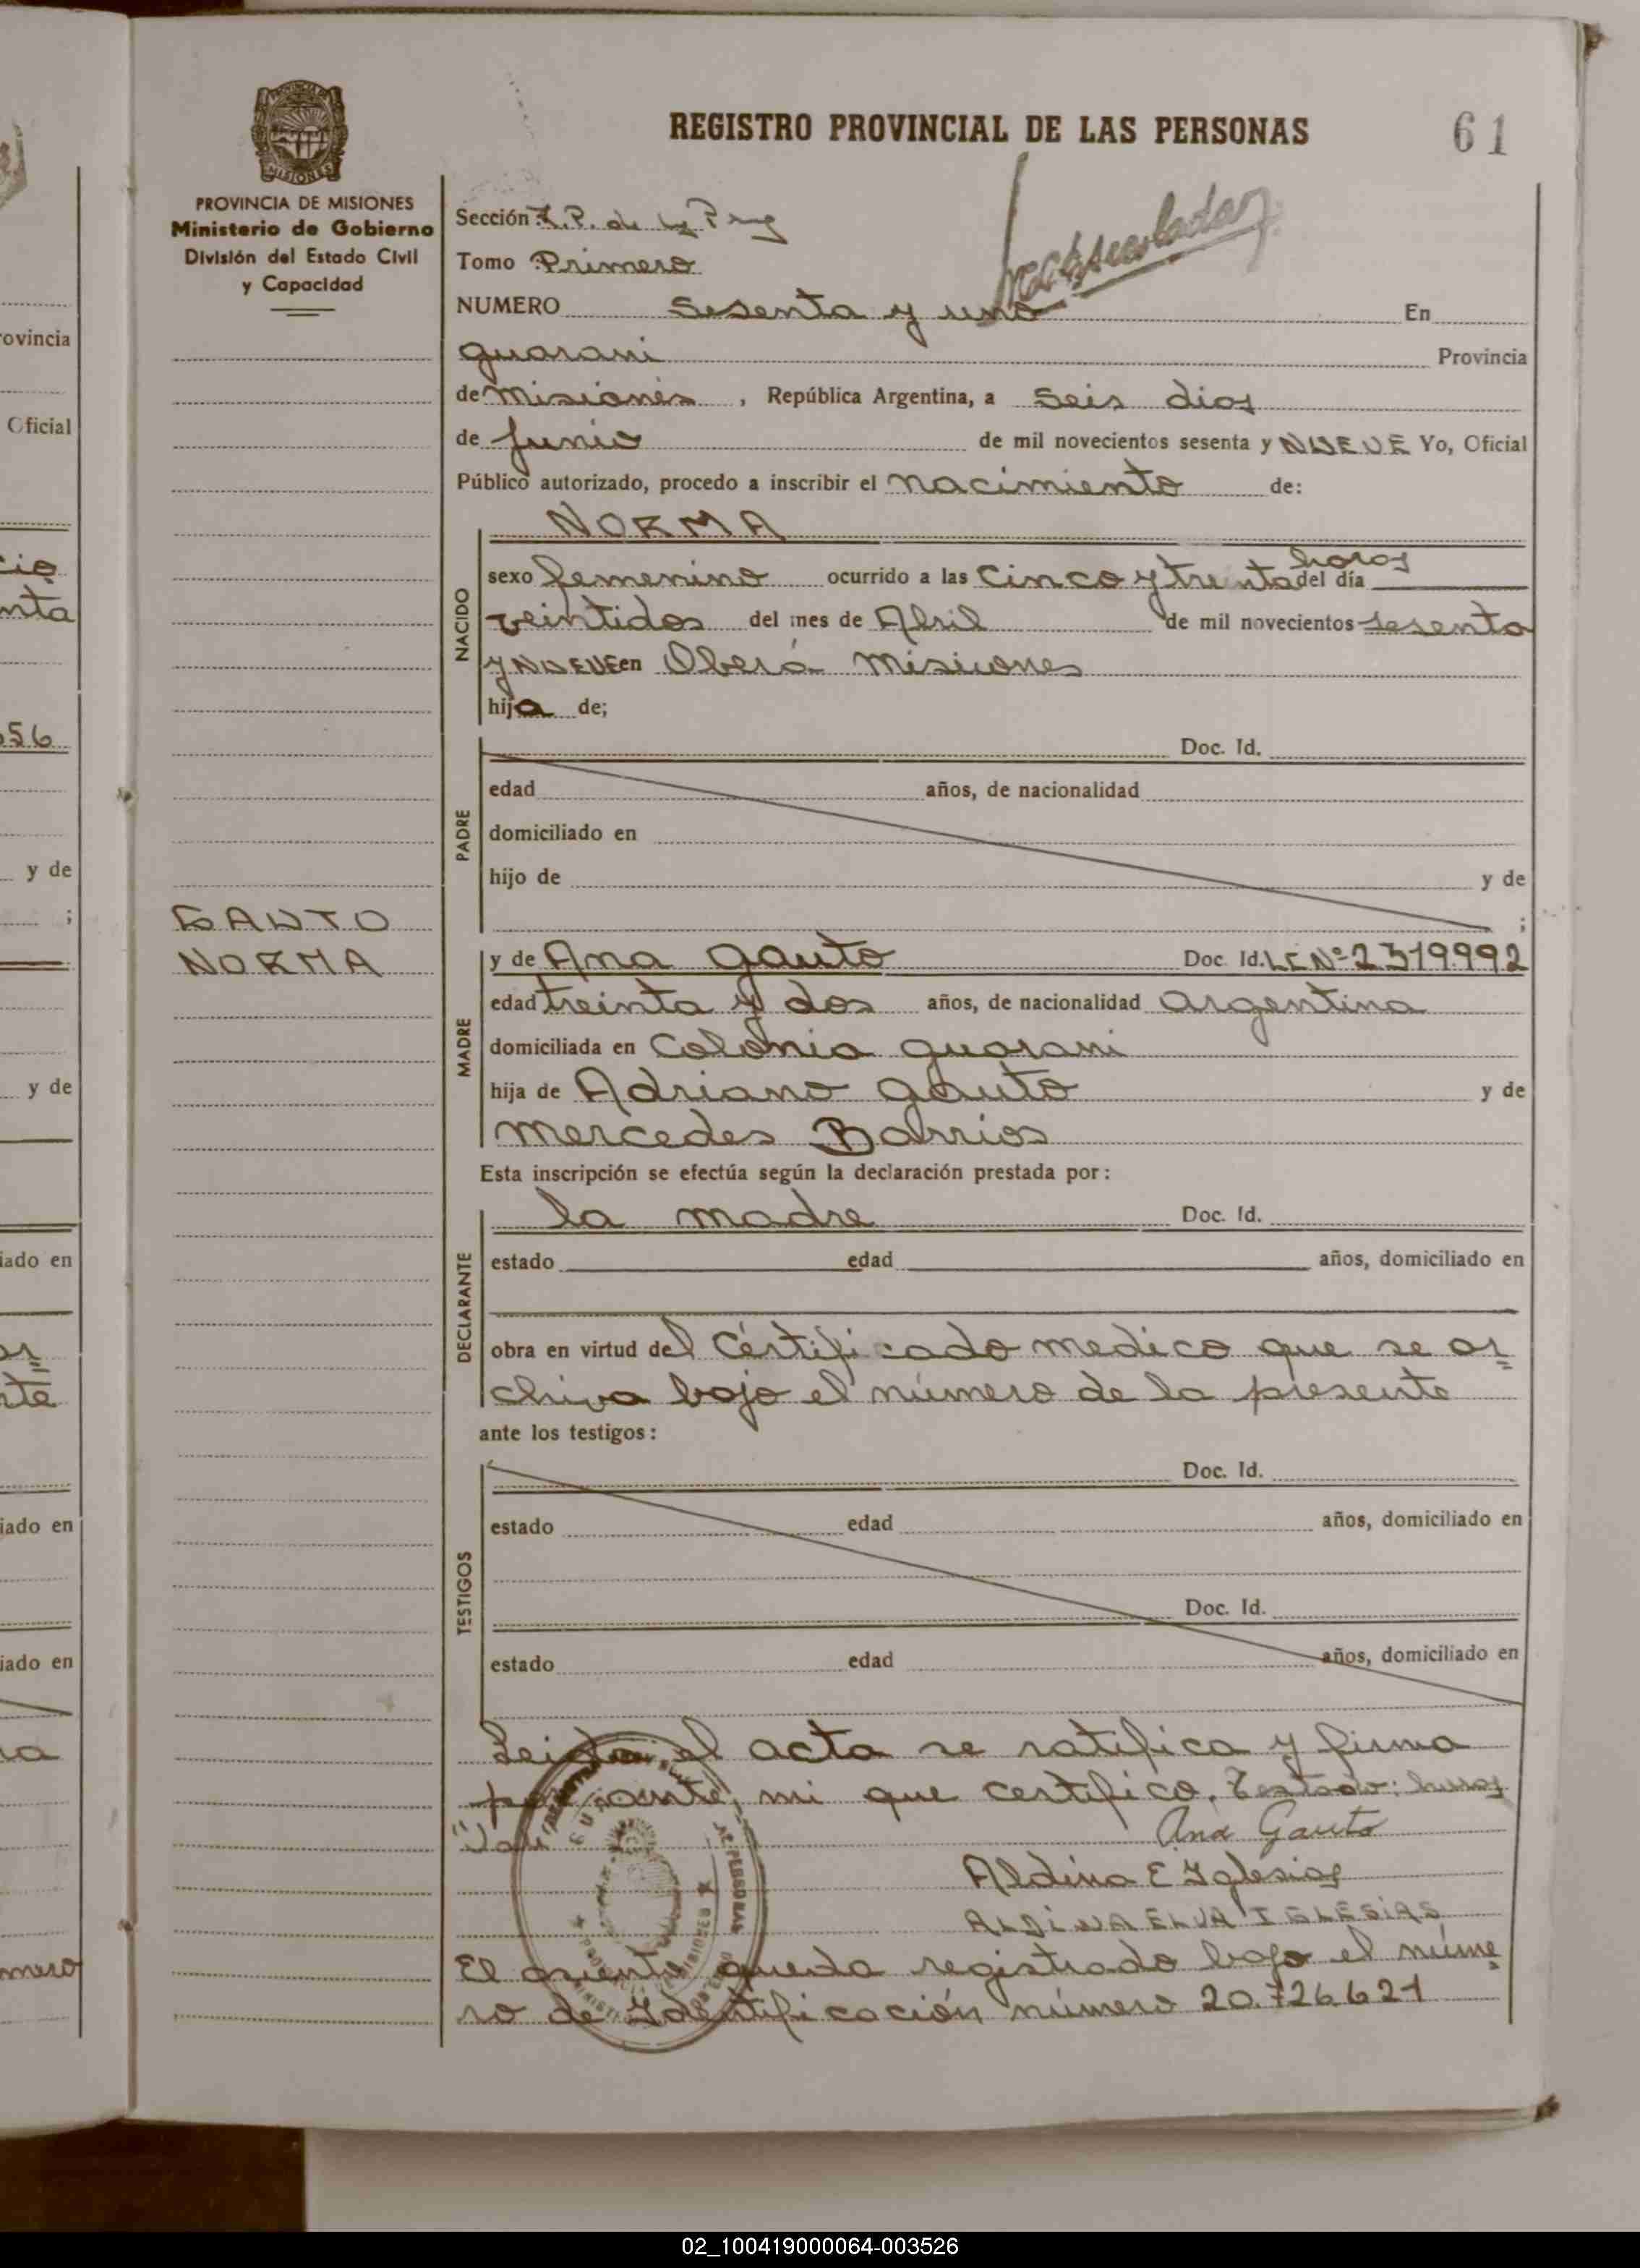 REGISTRO PROVINCIAL DE LAS PERSONAS
61
MISIONES
PROVINCIA DE MISIONES
Ministerio de Gobierno
División del Estado Civil
y Capacidad
Sección R.P. de las
Tomo Primero
NUMERO Sesenta y uno En
guarani Provincia
de Misiones, República Argentina, a seis dias
de Junio de mil novecientos sesenta y NUEVE Yo, Oficial
Público autorizado, procedo a inscribir el nacimiento de:
NACIDO
NORMA
horas
sexo femenino ocurrido a las cinco y treinta del día
veintidos del mes de Abril de mil novecientos sesenta
y NUEVE en Oberá Misiones
hija de;
PADRE
Doc. Id.
edad años, de nacionalidad
domiciliado en
hijo de y de
;
GAUTO
NORMA
MADRE
y de Ana Gauto Doc. Id. LC Nº 2319992
edad treinta y dos años, de nacionalidad argentina
domiciliada en Colonia guarani
hija de Adriano Gauto y de
Mercedes Barrios
Esta inscripción se efectúa según la declaración prestada por:
DECLARANTE
la madre Doc. Id.
estado edad años, domiciliado en
obra en virtud del Certificado medico que se ar
chiva bajo el número de la presente
ante los testigos:
TESTIGOS
Doc. Id.
estado edad años, domiciliado en
Doc. Id.
estado edad años, domiciliado en
Leida el acta se ratifica y firma
por ante mi que certifico. Testado: horas
"Vale
Ana Gauto
Aldina E Iglesias
ALDINA ELVA IGLESIAS
El asiento queda registrado bajo el núme
ro de Identificación número 20.726.621
ovincia
Oficial
nta
656
y de
;
y de
iado en
te
iado en
iado en
mero
02_100419000064-003526